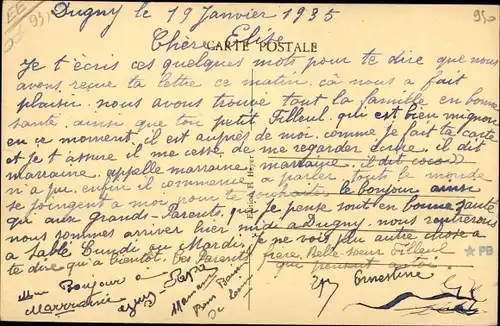 Dugny le 19 Janvier 1935
95
Chère Elise
CARTE POSTALE
Je t'écris ces quelques mots pour te dire que nous
avons reçue ta lettre ce matin cà nous a fait
plaisir. nous avons trouvé tout la famille en bonne
santé ainsi que ton petit Filleul qui est bien mignon
en ce moment, il est auprès de moi comme je fait ta carte
et je t'assure il me cesse de me regarder écrire il dit
marraine, appelle marraine marraine, il dit coco
n'a pu. enfin il commence a parler tout le monde
se joingent a moi pour te souhaiter le bonjour ainsi
qui aux grands-Parents, que je pense sont en bonne santé
nous sommes arriver hier midi a Dugny. nous rentrerons
a Sablé Lundi ou Mardi. je ne voit plu autre chose a
te dire qu'a bientôt. Tes Parents frère Belle-soeur Filleul
qui pensent a toi
Bonjour a
Marrraine
Papa
Maman
Ernestine
PB